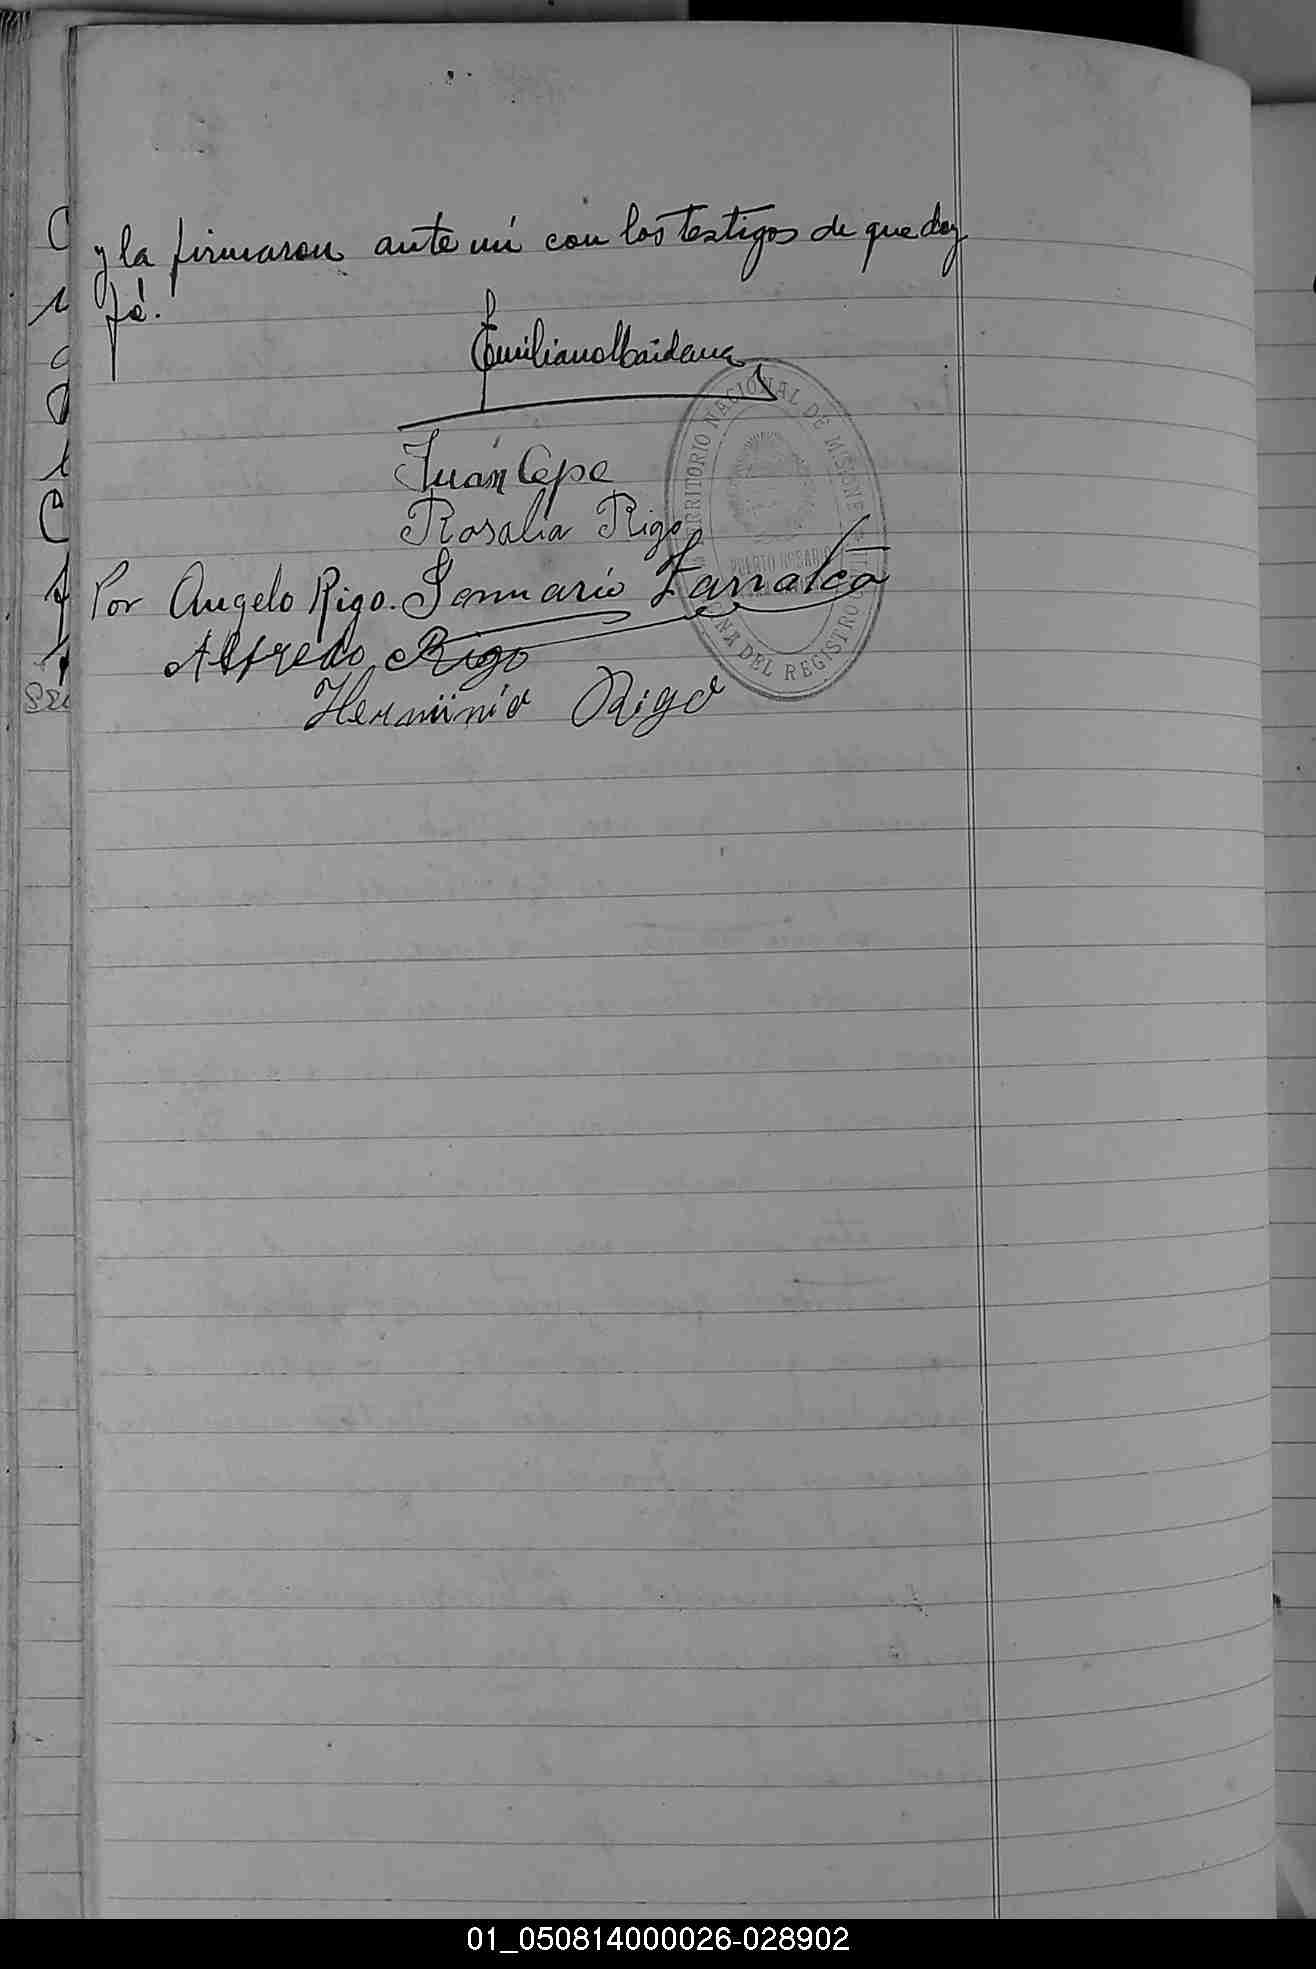 y la firmaron ante mí con los testigos de que doy
fé.
Emiliano Maidana
Juan Cepe
Rosalia Rigo
Por Angelo Rigo. Gennario
Alfredo Rigo
Herminio Rigo
TERRITORIO NACIONAL DE MISIONES
PUERTO ROSARIO
DEL REGISTRO
01_050814000026-028902